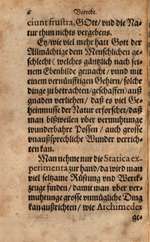 Vorrede.
ciunt frustra, GOtt / und die Na-
tur thun nichts vergebens.
Ey / wie viel mehr hat Gott der
Allmächtige dem Menschlichen ge-
schlecht / welches gäntzlich nach sei-
nem Ebenbilde gemacht / und mit
einem vernünfftigen Gehirn / solche
dinge zu betrachten / geschaffen / auß
gnaden verliehen / daß es viel Ge-
heimnusse der Natur erforschet / daß
man bißweilen uber vermuhtunge
wunderbahre Possen / auch grosse
unaußsprechliche Wunder verrich-
ten kan.
Man nehme nur die Statica ex-
perimenta zur hand / da wird man
viel seltzame Rüstung und Werck-
zeuge finden / damit man uber ver-
muhtunge grosse unmügliche Ding
kan außrichten / wie Archimedes
ge-